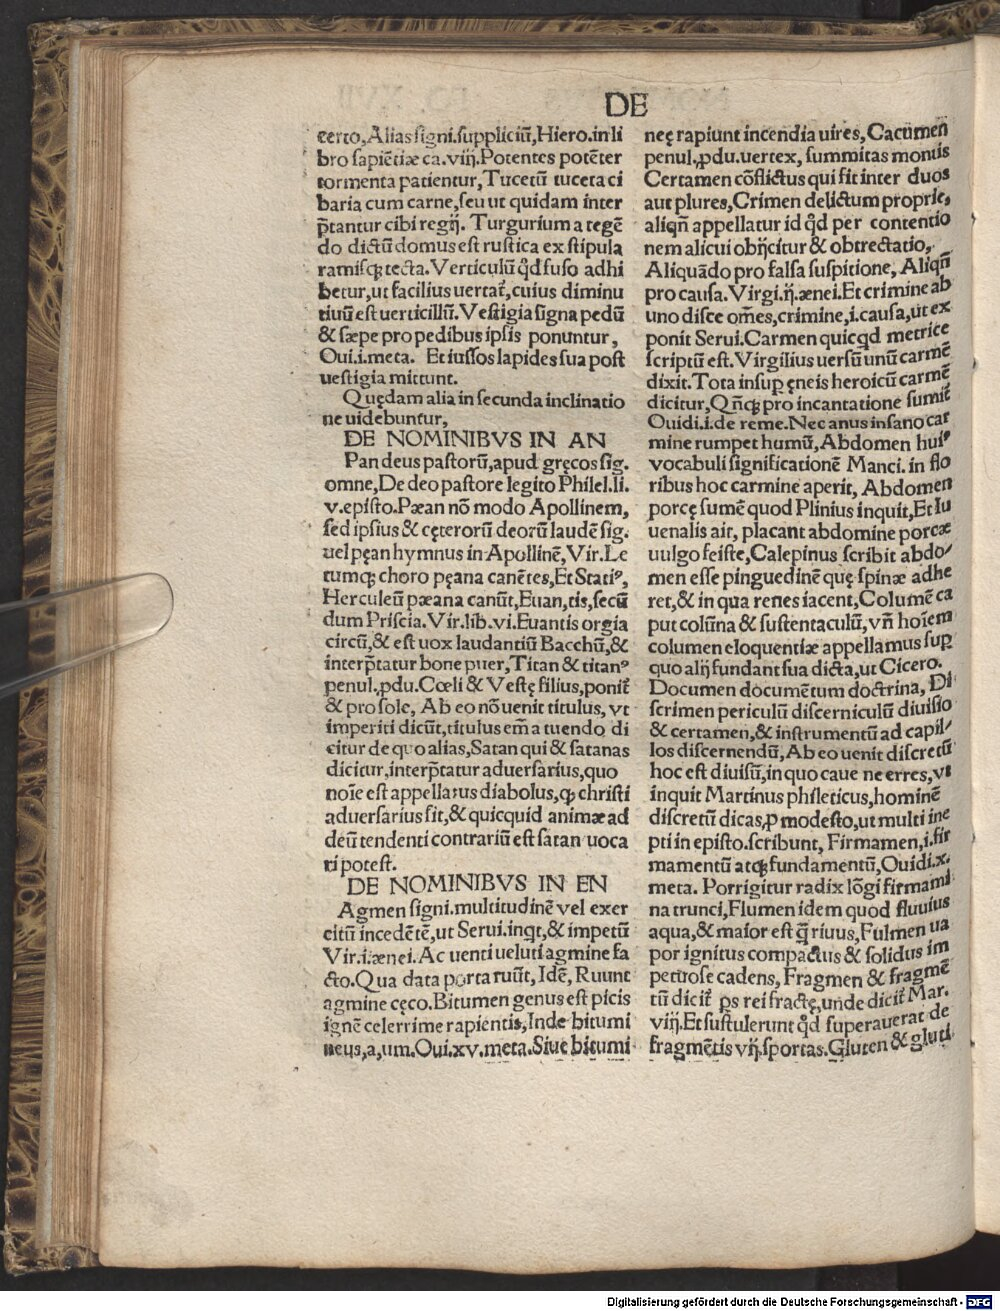 DE
certo, Alias signi. suppliciū, Hiero. in li
bro sapiētiæ ca. viij. Potentes potēter
tormenta patientur, Tucetū tuceta ci
baria cum carne, seu ut quidam inter
p̄tantur cibi regij. Turgurium a tegē
do dictū domus est rustica ex stipula
ramisqꝫ tecta. Verticulū qd̄ fuso adhi
betur, ut facilius uertat̄, cuius diminu
tiuū est uerticillū. Vestigia signa pedū
& sæpe pro pedibus ipsis ponuntur,
Oui. i. meta. Et iussos lapides sua post
uestigia mittunt.
Quędam alia in secunda inclinatio
ne uidebuntur,
DE NOMINIBVS IN AN
Pan deus pastorū, apud gręcos sig.
omne, De deo pastore legito Philel. li.
v. episto. Pæan nō modo Apollinem,
sed ipsius & cęterorū deorū laudē sig.
uel pęan hymnus in Apollinē, Vir. Le
tumqꝫ choro pęana canētes, Et Statiꝰ,
Herculeū pæana canūt, Euan, tis, secū
dum Priscia. Vir. lib. vi. Euantis orgia
circū, & est uox laudantiū Bacchū, &
interp̄tatur bone puer, Titan & titanꝰ
penul. ꝓdu. Cœli & Vestę filius, ponit̄
& pro sole, Ab eo nō uenit titulus, vt
imperiti dicūt, titulus em̄ a tuendo di
citur de quo alias, Satan qui & satanas
dicitur, interp̄tatur aduersarius, quo
noīe est appellatus diabolus, qꝫ christi
aduersarius sit, & quicquid animæ ad
deū tendenti contrariū est satan uoca
ri potest.
DE NOMINIBVS IN EN
Agmen signi. multitudinē vel exer
citū incedētē, ut Serui. inqt, & impetū
Vir. i. ænei. Ac uenti ueluti agmine fa
cto. Qua data porta ruūt, Idē, Ruunt
agmine cęco. Bitumen genus est picis
ignē celerrime rapientis, Inde bitumi
neus, a, um. Oui. xv. meta. Siue bitumi
neę rapiunt incendia uires, Cacumen
penul. ꝓdu. uertex, summitas montis
Certamen cōflictus qui fit inter duos
aut plures, Crimen delictum proprie,
aliqn̄ appellatur id qd̄ per contentio
nem alicui obijcitur & obtrectatio,
Aliquādo pro falsa suspitione, Aliqn̄
pro causa. Virgi. ij. ænei. Et crimine ab
uno disce om̄es, crimine, i. causa, ut ex
ponit Serui. Carmen quicqd metrice
scriptū est. Virgilius uersū unū carmē
dixit. Tota insuꝑ ęneis heroicū carmē
dicitur, Qn̄qꝫ pro incantatione sumit̄
Ouidi. i. de reme. Nec anus insano car
mine rumpet humū, Abdomen huiꝰ
vocabuli significationē Manci. in flo
ribus hoc carmine aperit, Abdomen
porcę sumē quod Plinius inquit, Et Iu
uenalis ait, placant abdomine porcæ
uulgo feiste, Calepinus scribit abdo/
men esse pinguedinē quę spinæ adhe
ret, & in qua renes iacent, Columē ca
put colūna & sustentaculū, vn̄ hoīem
columen eloquentiæ appellamus suꝑ
quo alij fundant sua dicta, ut Cicero.
Documen documētum doctrina, Di
scrimen periculū discerniculū diuisio
& certamen, & instrumentū ad capil/
los discernendū, Ab eo uenit discretū
hoc est diuisū, in quo caue ne erres, vt
inquit Martinus phileticus, hominē
discretū dicas, ꝓ modesto, ut multi ine
pti in episto. scribunt, Firmamen, i. fir
mamentū atqꝫ fundamentū, Ouidi. x.
meta. Porrigitur radix lōgi firmami
na trunci, Flumen idem quod fluuius
aqua, & maior est q̄ riuus, Fulmen ua
por ignitus compactus & solidus im
petuose cadens, Fragmen & fragmē
tū dicit̄ ps rei fractę, unde dicit̄ Mar.
viij. Et sustulerunt qd̄ superauerat de
fragmētis vij. sportas. Gluten & gluti
Digitalisierung gefördert durch die Deutsche Forschungsgemeinschaft - DFG